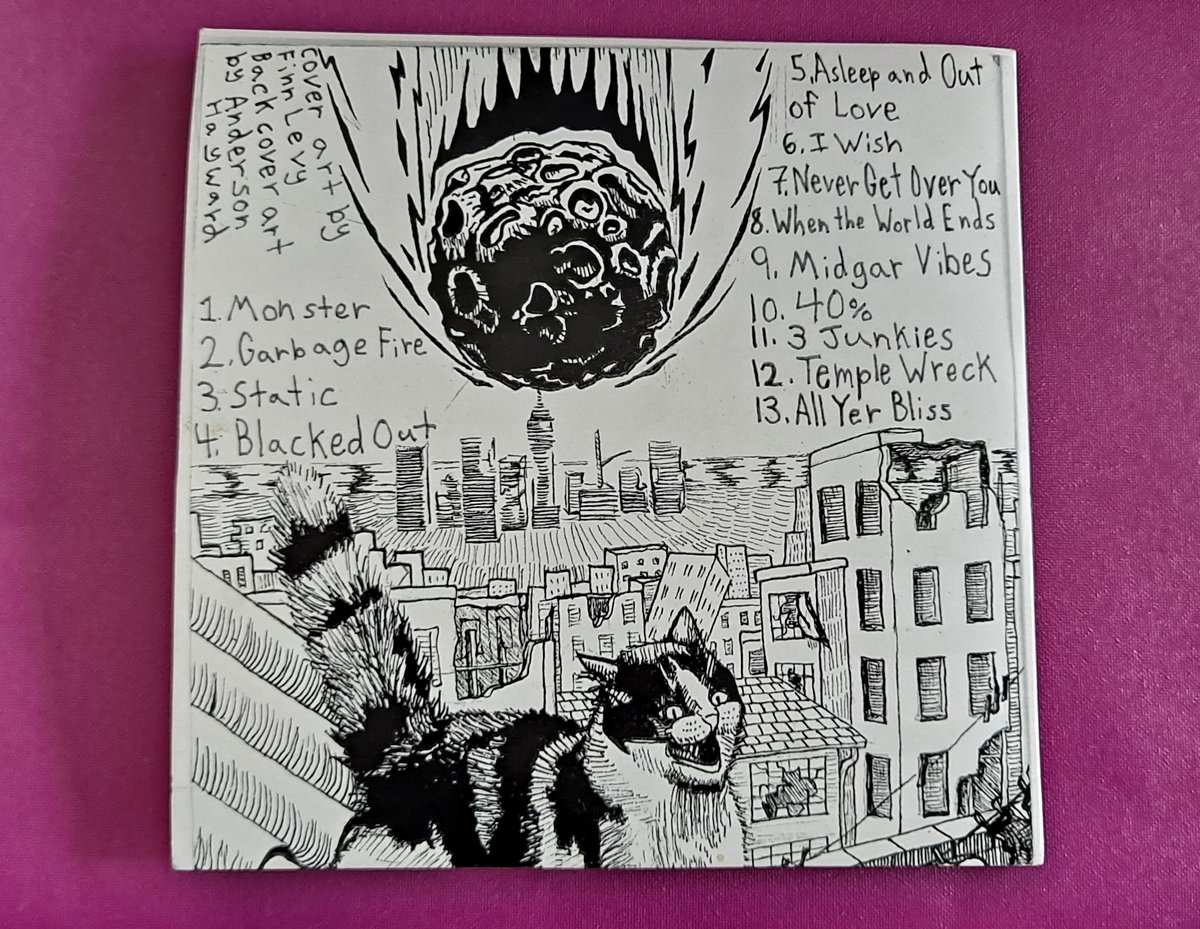 Cover art by
Finn Levy
Back cover art
by Anderson
Hayward
1. Monster
2. Garbage Fire
3. Static
4. Blacked Out
5. Asleep and Out
of Love
6. I Wish
7. Never Get Over You
8. When the World Ends
9. Midgar Vibes
10. 40%
11. 3 Junkies
12. Temple Wreck
13. All Yer Bliss